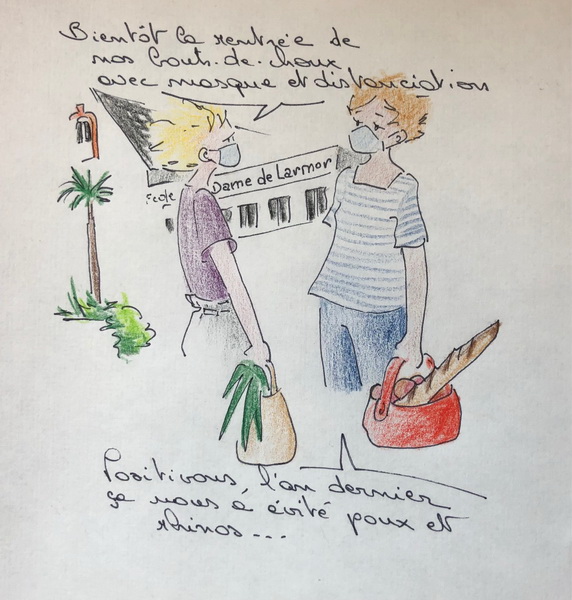 Bientôt la rentrée de
nos bouts-de-choux
avec masque et distanciation
Ecole Dame de Larmor
Positivons, l'an dernier
ça nous a évité poux et
rhinos...